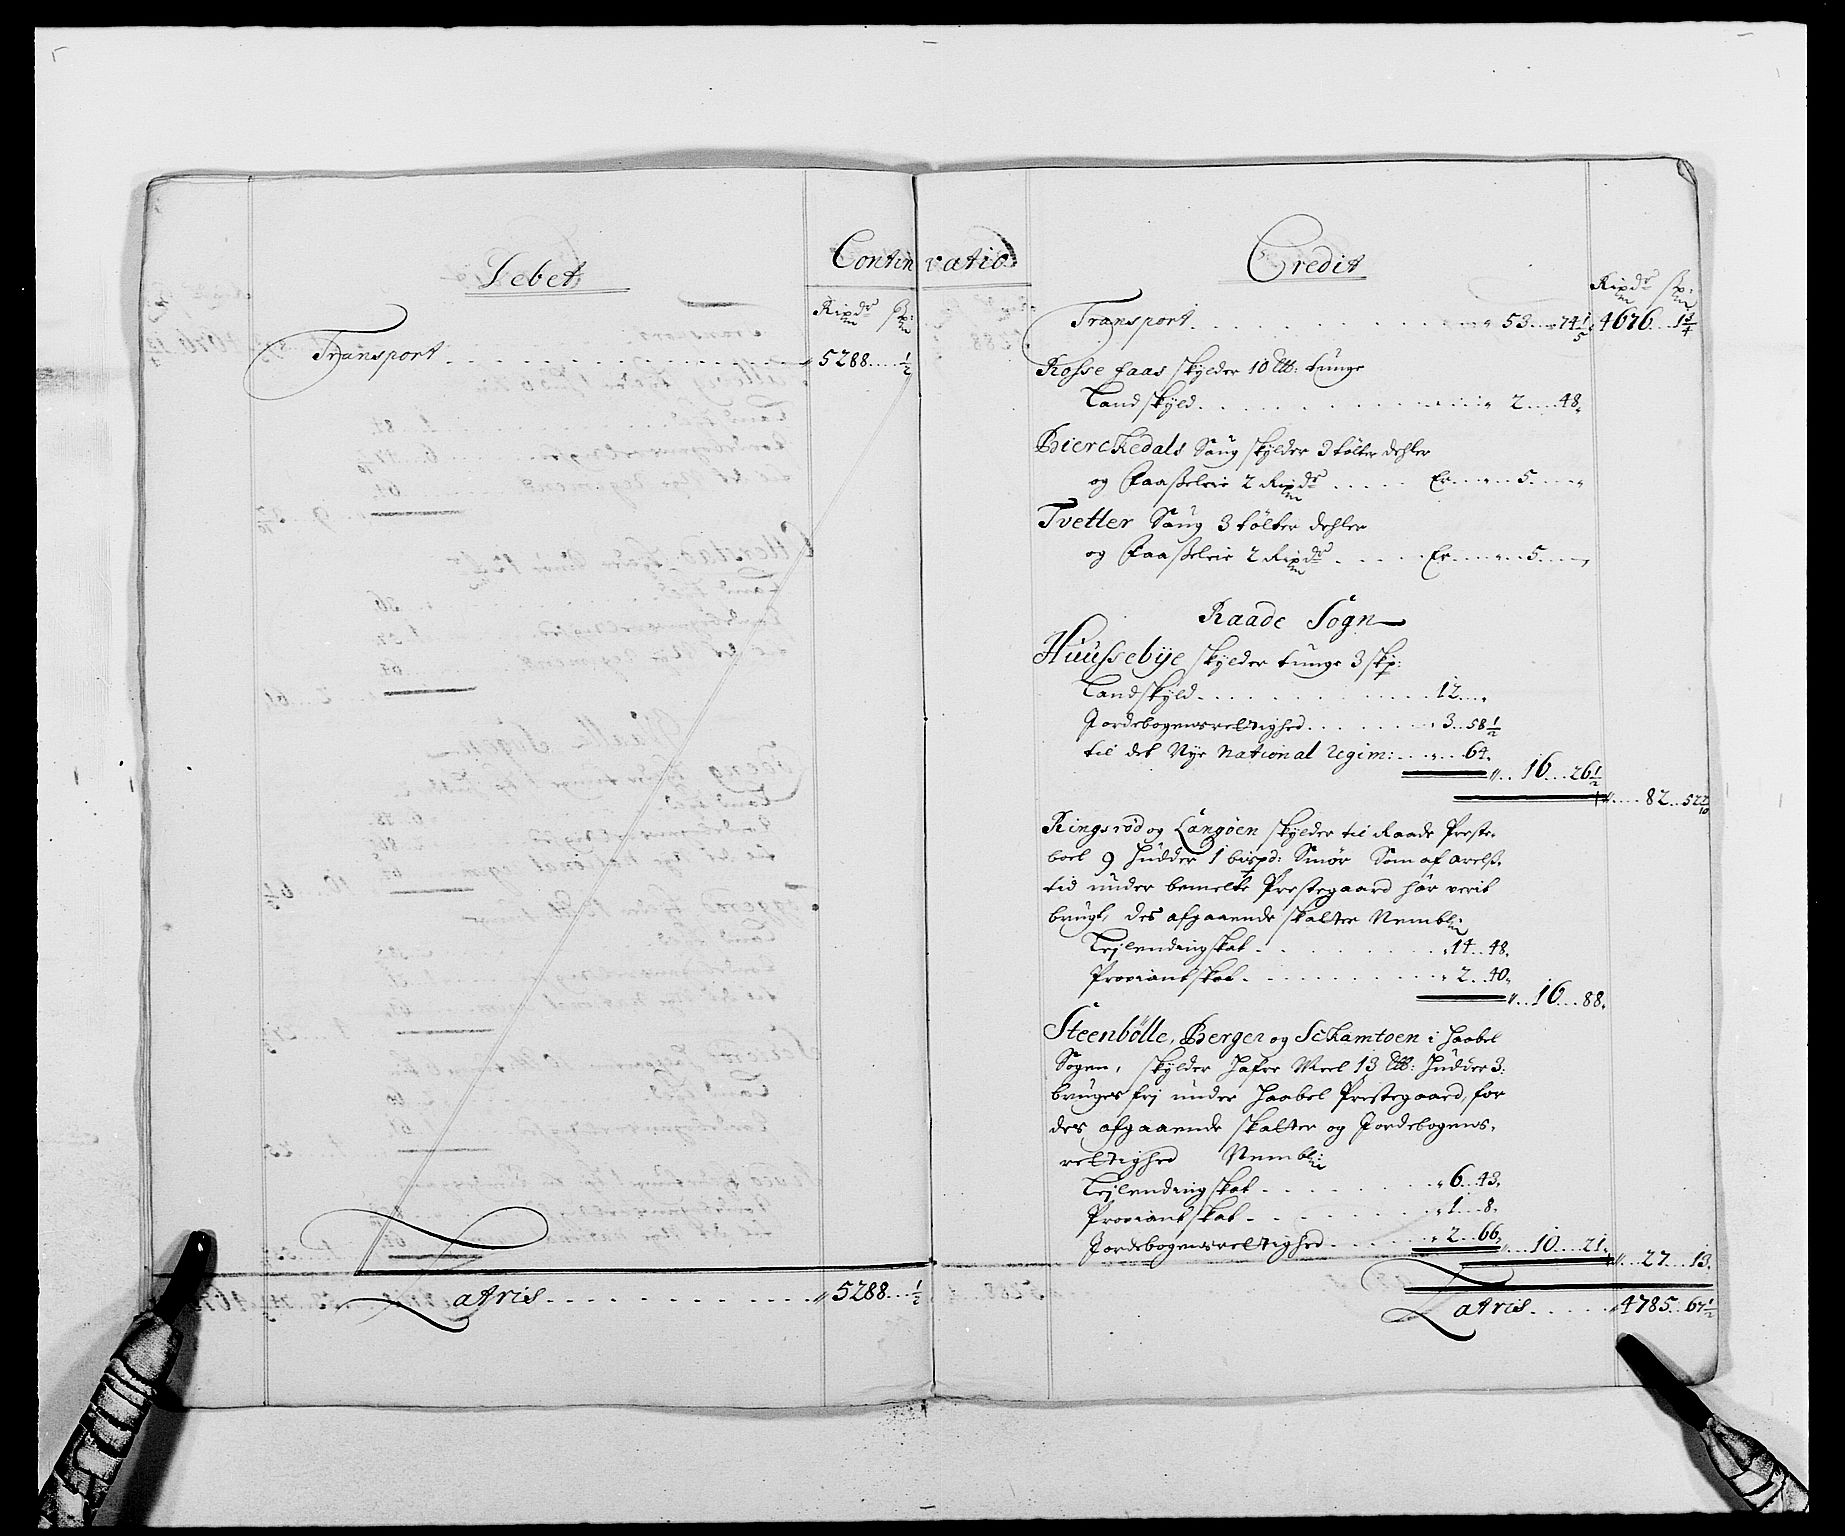 Debet
Continuatio
Rixdr sk:
Transport 5288 1/2
Latris 5288 1/2
Credit
Rixdr sk:
Transport 53 74 1/5 4676 1 3/4
Rosse faas skylder 10 lb: tunge
Landskyld 2 48
Bierckedals Saug skylder 3 tölter dehler
og Faaßeleie 2 Rixdr Er 5
Tvetter Saug 3 tölter dehler
og Faaßeleie 2 Rixdr Er 5
Raade Sogn
Huussebÿe skylder tunge 3 skp:
Landskyld 12
Jordebogensrettighed 3 58 1/2
til det Nye National regim: 64
16 26 1/2
82 52 7/10
Ringsrød og Langøen skylder til Raade Preste-
boel 9 hudder 1 bispd: Smør Som af arelß-
tid under bemelte Prestegaard har verit
brugt, des afgaaende skatter Nembl:
Leylendingskat 14 48
Proviantskat 2 40
16 88
Steenbölle, Berger og Schamtoen i Haabel
Sogen, skylder hafre Meel 13 lb: hudder 3:
bruges frj under Haabel Prestegaard, for
des afgaaende skatter og Jordebogens-
rettighed Nembl:
Leylendingskat 6 43
Proviantskat 1 8
Jordebogensrettighed 2 66 10 21
27 13
Latris 4785 67 1/2